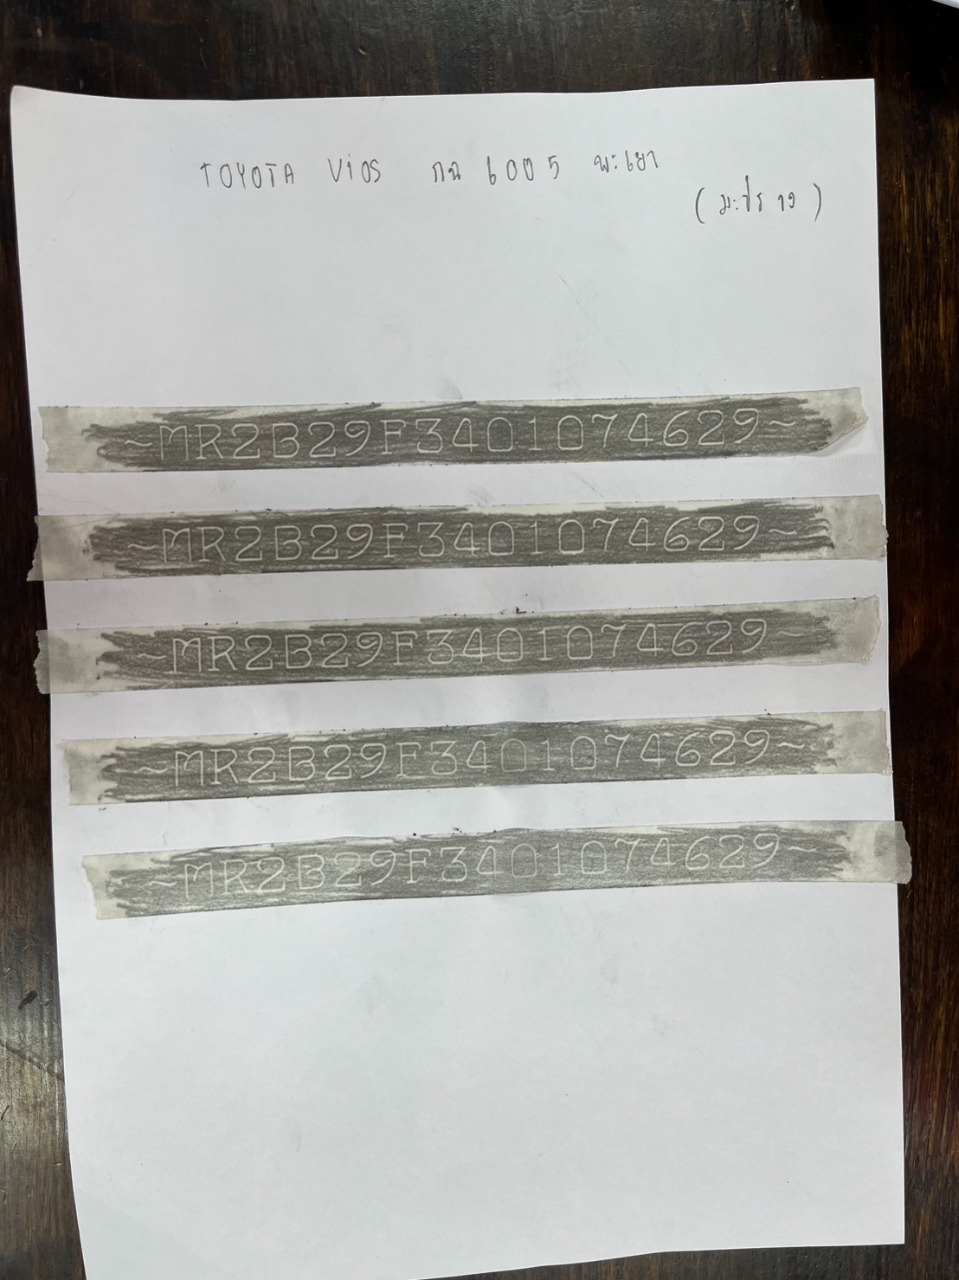 TOYOTA ViOS กฉ 6005 พะเยา
~MR2B29F3401074629~
~MR2B29F3401074629~
~MR2B29F3401074629~
~MR2B29F3401074629~
~MR2B29F3401074629~